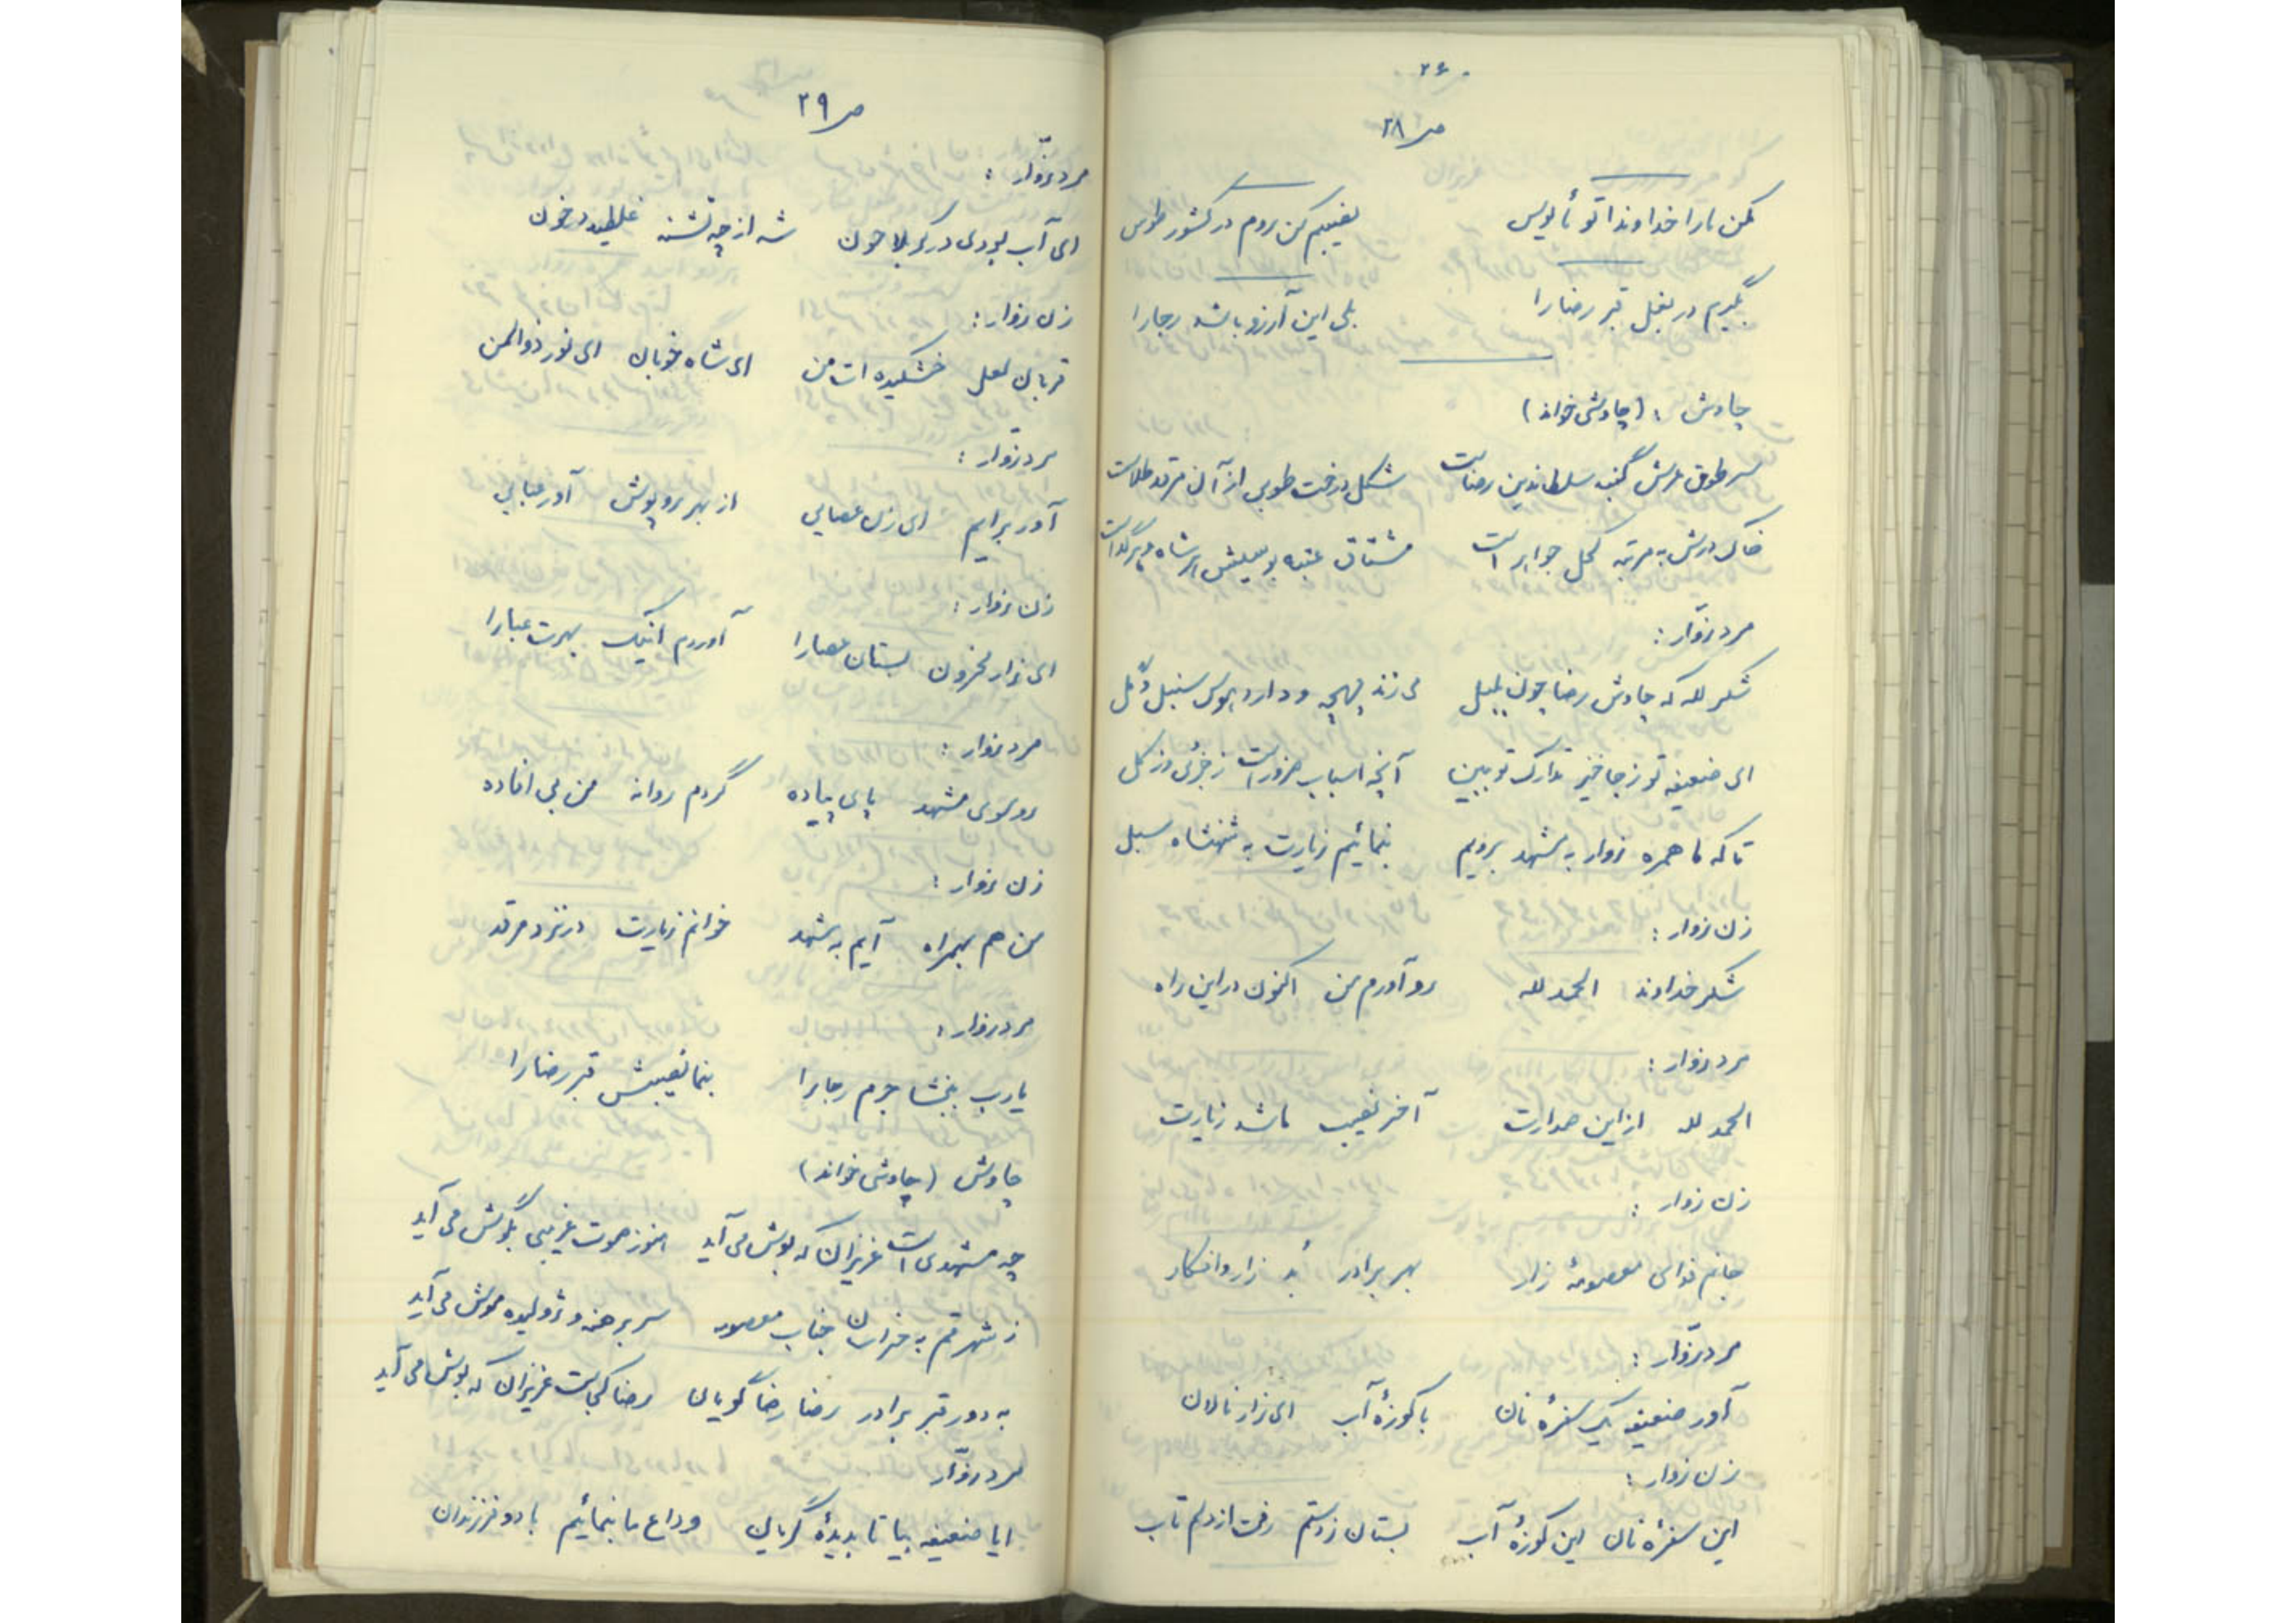 ۲۶۰
ص ۲۸
مکن ما را خداوندا تو مأیوس نصیبم کن روم در کشور طوس
بگیرم در بغل قبر رضا را بلی این آرزو باشد رجا را
چاوش : (چاوشی خواند)
سر طوق عرش گنبد سلطاندین رضاست شکل درخت طوبی از آن مرقد طلاست
خاک درش به مرتبه کحل جواهر است مشتاق عتبه بوسیش هر شاه و هر گداست
مرد زوّار :
شکر لله که چاوش رضا چون بلبل می زند چهچه و دارد بوس سنبل و گل
ای ضعیفه تو ز جا خیز تدارک تو ببین آنچه اسباب ضرور است ز جزئی و ز کل
تا که ما همره زوار به مشهد برویم بنمائیم زیارت به شهنشاه سبل
زن زوار :
شکر خداوند الحمد لله رو آورم من اکنون در این راه
مرد زوار :
الحمد لله از این صدارت آخر نصیب ما شد زیارت
زن زوار :
جانم فدای معصومهٔ زار بهر برادر شد زار و افکار
مرد زوّار :
آور ضعیفه یک سفره نان با کوزهٔ آب ای زار نالان
زن زوار :
این سفرهٔ نان این کوزهٔ آب بستان ز دستم رفت از دلم تاب
ص ۲۹
مرد زوّار :
ای آب بودی در کربلا چون شه از چه تشنه غلطید در خون
زن زوار :
قربان لعل خشکیده ات من ای شاه خوبان ای نور ذوالمن
مرد زوّار :
آور برایم ای زن عصایی از بهر روپوش آور عبایی
زن زوار :
ای زار محزون بستان عصا را آوردم اینک بهرت عبا را
مرد زوار :
رو سوی مشهد پای پیاده گردم روانه من بی افاده
زن زوار :
من هم بهمراه آیم به مشهد خوانم زیارت در نزد مرقد
مرد زوار :
یارب ببخشا جرم رجا را بنما نصیبش قبر رضا را
چاوش (چاوشی خواند)
چه مشهدی است عزیزان که بوش می آید هنوز صوت غریبی بگوش می آید
ز شهر قم به خراسان جناب معصومه سر برهنه و ژولیده موش می آید
به دور قبر برادر رضا رضا گویان رضا کجاست عزیزان که بوش می آید
مرد زوّار
ایا ضعیفه بیا تا بدیدهٔ گریان وداع ما بنمائیم با دو فرزندان